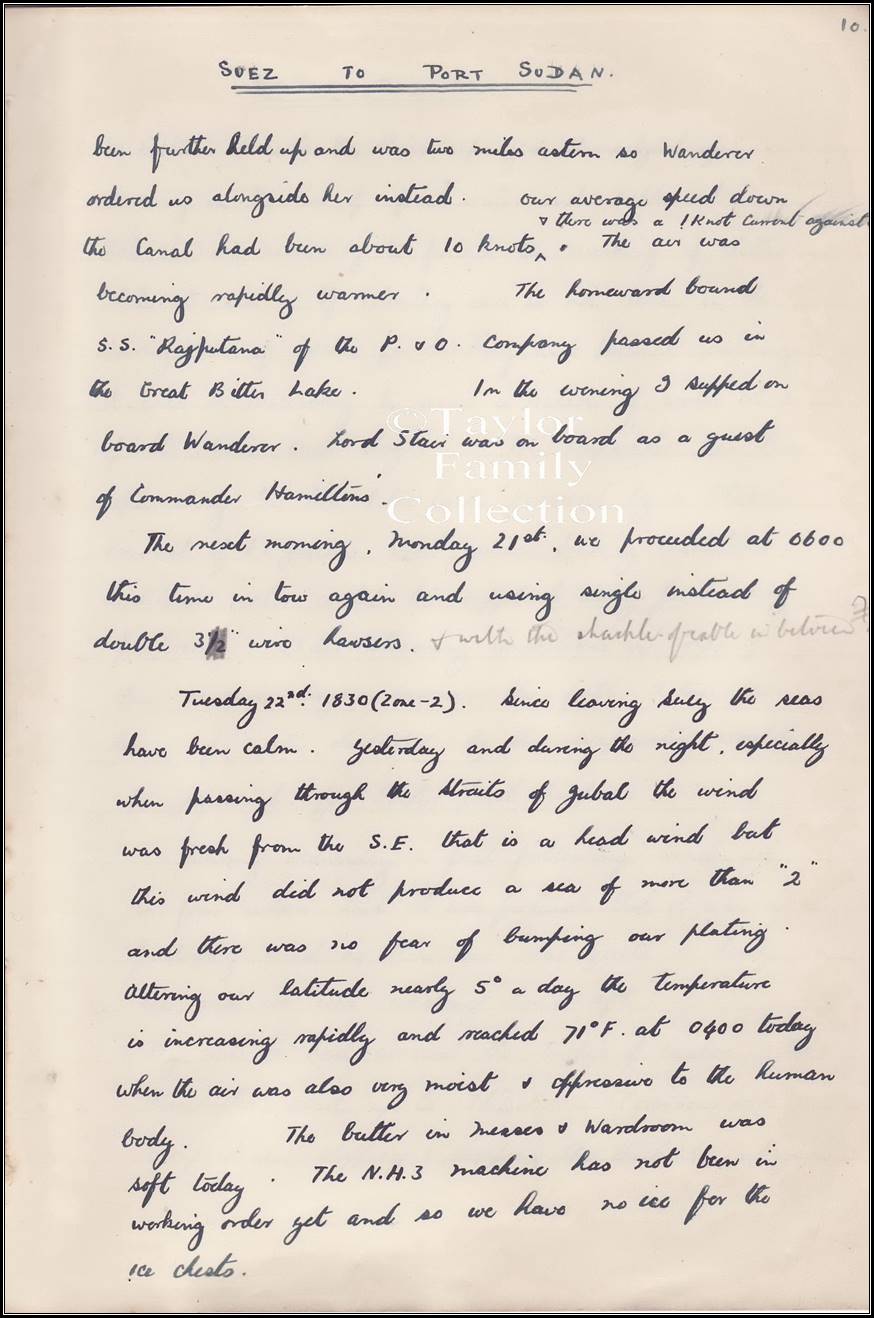 10.
SUEZ TO PORT SUDAN.
been further held up and was two miles astern so Wanderer
ordered us alongside her instead. our average speed down
& there was a 1 Knot current against
the Canal had been about 10 knots ^ . The air was
becoming rapidly warmer . The homeward bound
S.S. "Rajputana" of the P. & O. Company passed us in
the Great Bitter Lake. In the evening I supped on
board Wanderer. Lord Stair was on board as a guest
of Commander Hamiltons'.
The next morning, Monday 21st., we proceeded at 0600
this time in tow again and using single instead of
double 3½" wire hawsers. & with the shackle of cable in between
Tuesday 22nd. 1830 (Zone -2). Since leaving Suez the seas
have been calm. Yesterday and during the night, especially
when passing through the Straits of Jubal the wind
was fresh from the S.E. that is a head wind but
this wind did not produce a sea of more than "2"
and there was no fear of bumping our plating.
Altering our latitude nearly 5° a day the temperature
is increasing rapidly and reached 71°F. at 0400 today
when the air was also very moist & oppressive to the human
body. The butter in Messes & Wardroom was
soft today. The N.H.3 machine has not been in
working order yet and so we have no ice for the
ice chests.
©Taylor
Family
Collection